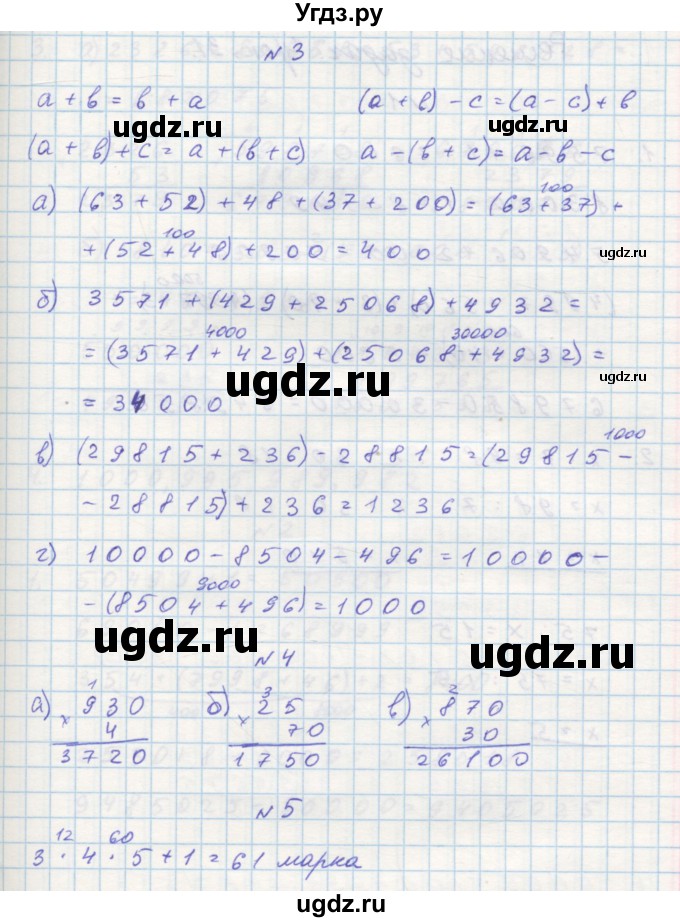 Угдз.ру
№ 3
a + b = b + a (a + b) - c = (a - c) + b
ugdz.ru ugdz.ru
(a + b) + c = a + (b + c) a - (b + c) = a - b - c
100
а) (63 + 52) + 48 + (37 + 200) = (63 + 37) +
100
+ (52 + 48) + 200 = 400
ugdz.ru
б) 3571 + (429 + 25068) + 4932 =
4000 30000
= (3571 + 429) + (25068 + 4932) =
ugdz.ru ugdz.ru
= 34000
1000
в) (29815 + 236) - 28815 = (29815 -
- 28815) + 236 = 1236
г) 10000 - 8504 - 496 = 10000 -
9000
- (8504 + 496) = 1000
ugdz.ru ugdz.ru
№ 4
1 3 2
а) 930 б) 25 в) 870
× 4 × 70 × 30
3720 1750 26100
ugdz.ru ugdz.ru
№ 5
12 60
3 · 4 · 5 + 1 = 61 марка
ugdz.ru ugdz.ru